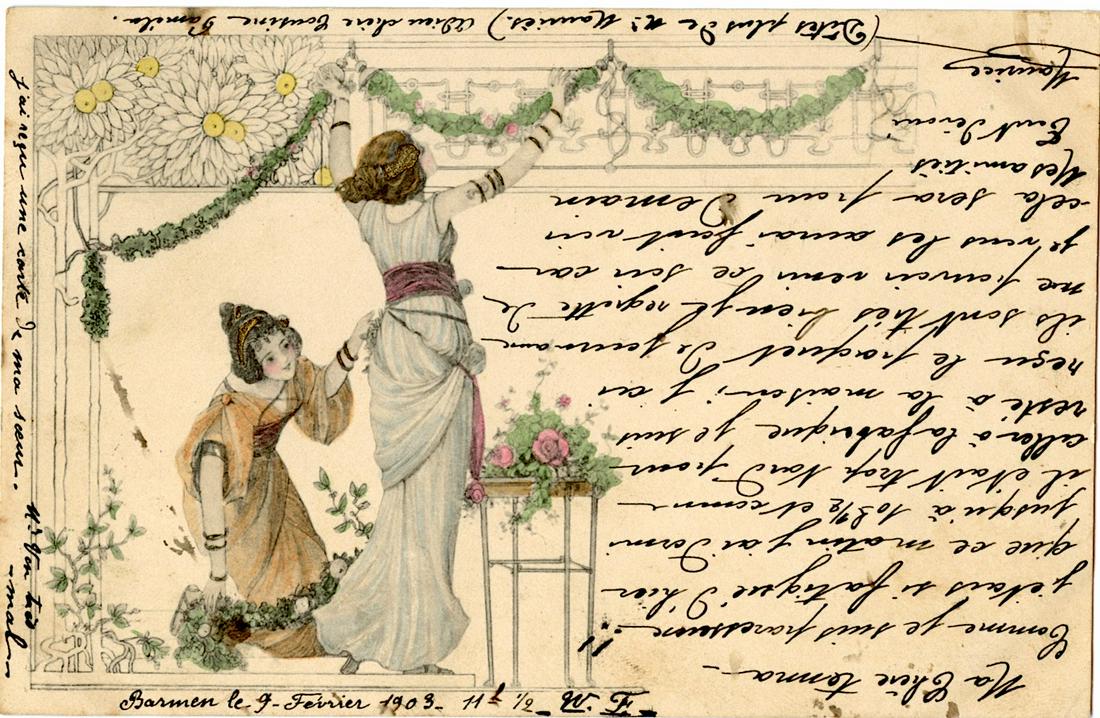 Barmen le 9- Février 1903- 11 h 1/2
Ma Chère
Comme je suis paresseuse!!
j'étais si fatigué d'hier
que ce matin j'ai dormi
jusqu'à 10 h 1/2 et comme
il était trop tard pour
aller à la fabrique je suis
resté à la maison; j'ai
reçu le paquet de journaux
ils sont très bien je regrette de
ne pouvoir venir ce soir car
je vous les aurai fait voir
cela sera pour Demain
Mes amitiés
Tout dévoué
Maurice
(Dites plus de Mr) Adieu chère Cousine
j'ai reçu une carte de ma sœur..
très
mal